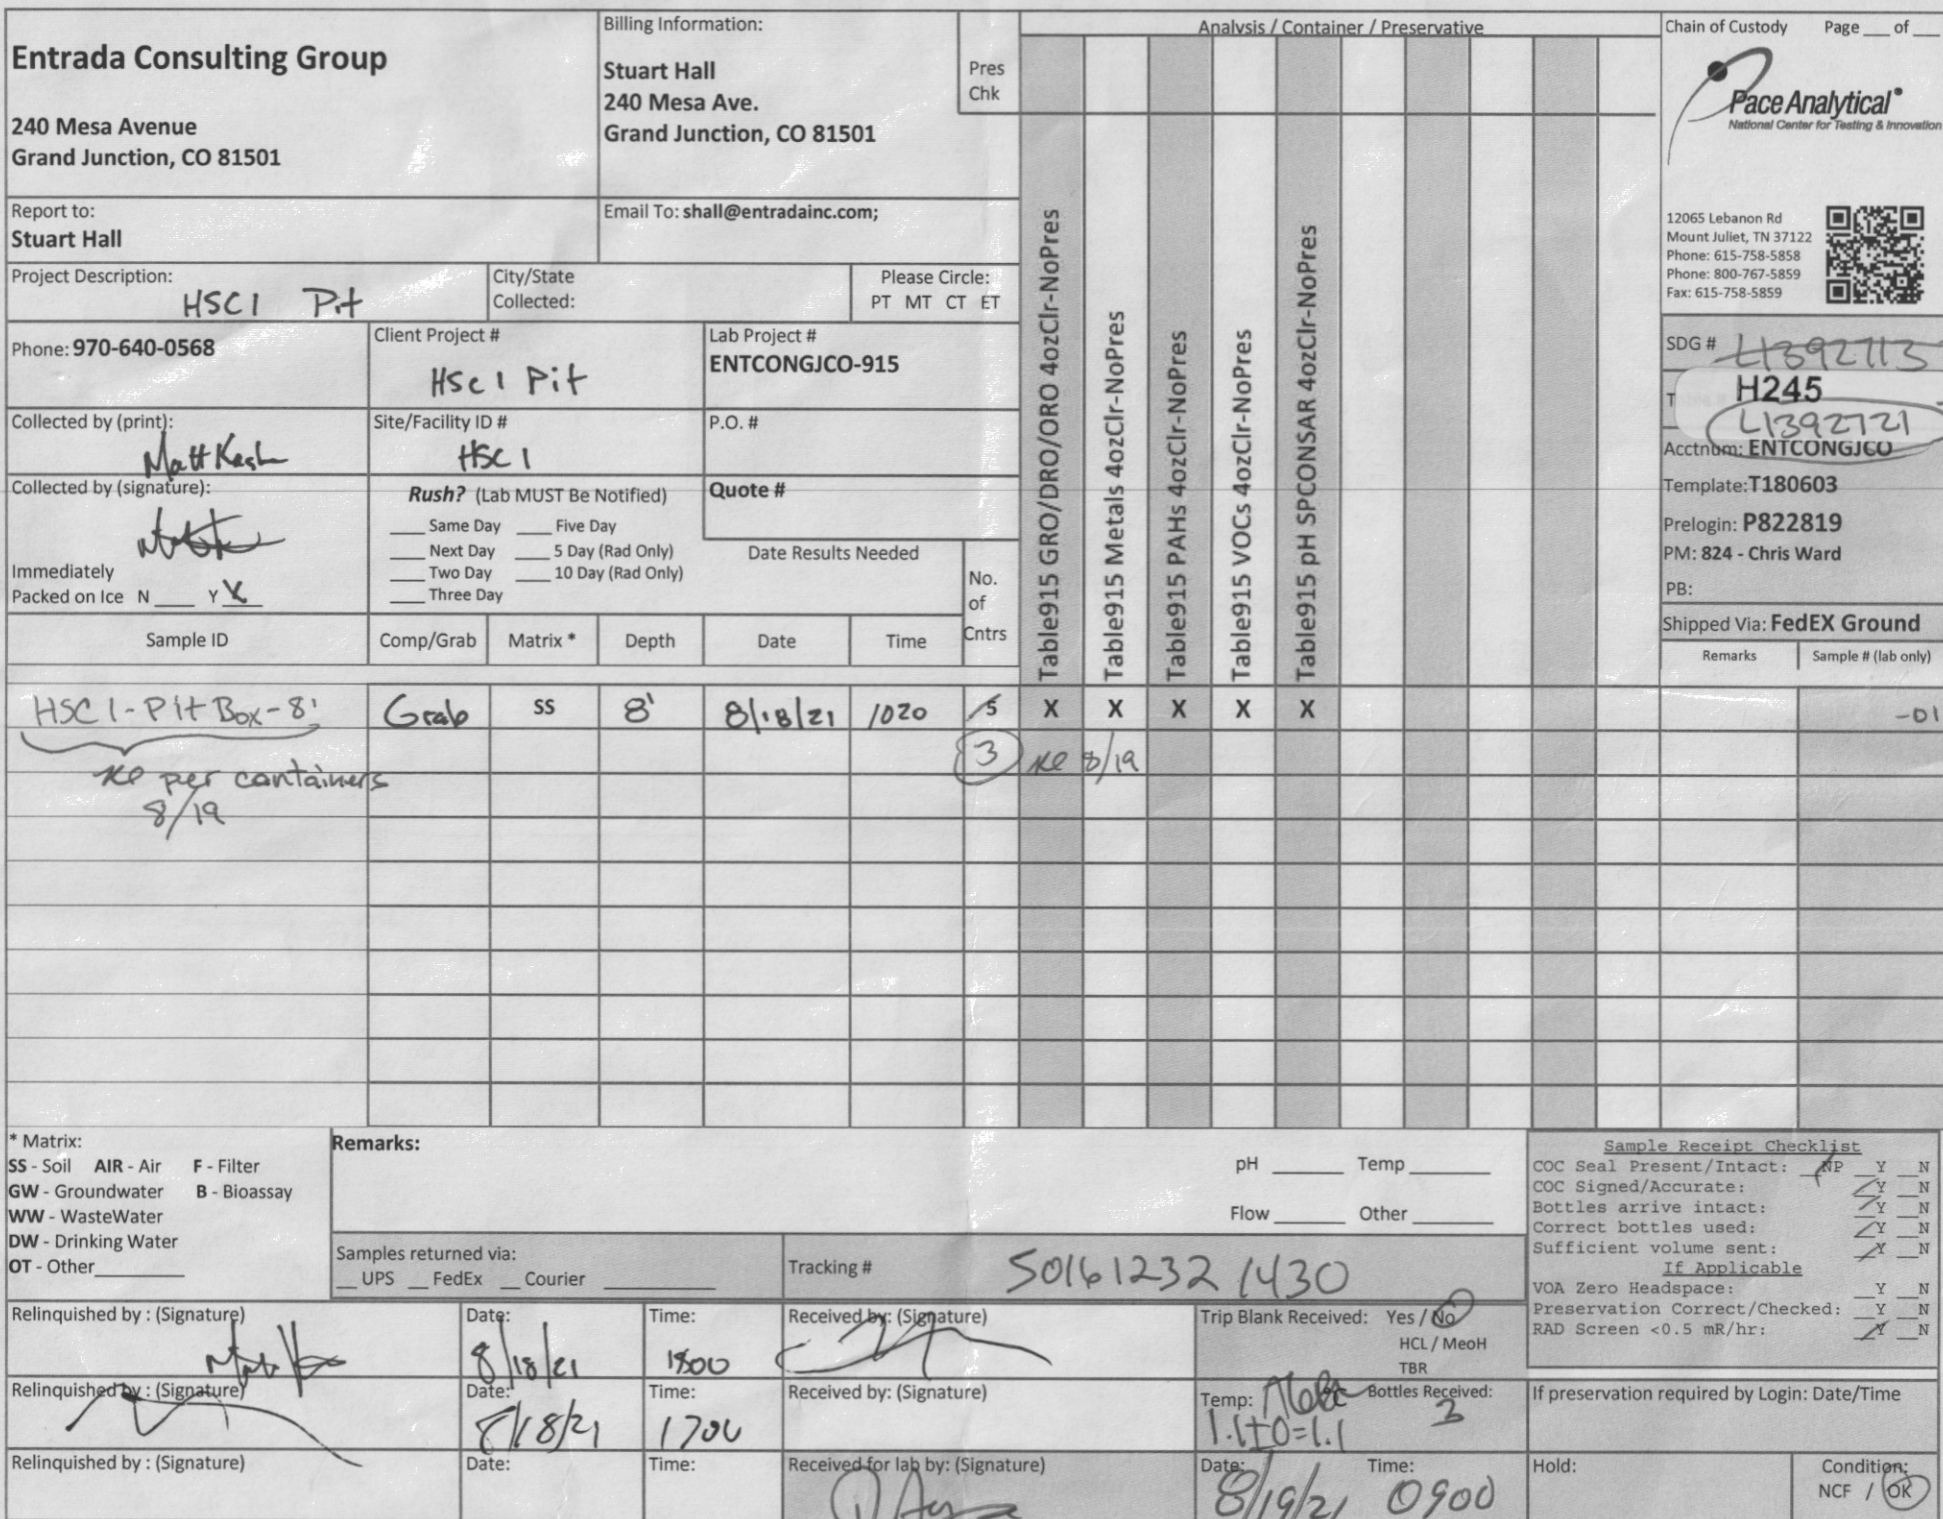 Entrada Consulting Group
240 Mesa Avenue
Grand Junction, CO 81501
Billing Information:
Stuart Hall
240 Mesa Ave.
Grand Junction, CO 81501
Pres
Chk
Analysis / Container / Preservative
Chain of Custody Page ___ of ___
Pace Analytical®
National Center for Testing & Innovation
12065 Lebanon Rd
Mount Juliet, TN 37122
Phone: 615-758-5858
Phone: 800-767-5859
Fax: 615-758-5859
Report to:
Stuart Hall
Email To: shall@entradainc.com;
Project Description:
HSC1 Pit
City/State
Collected:
Please Circle:
PT MT CT ET
Phone: 970-640-0568
Client Project #
HSC1 Pit
Lab Project #
ENTCONGJCO-915
Collected by (print):
Matt
Site/Facility ID #
HSC1
P.O. #
Collected by (signature):
Immediately
Packed on Ice N ___ Y X
Rush? (Lab MUST Be Notified)
___ Same Day ___ Five Day
___ Next Day ___ 5 Day (Rad Only)
___ Two Day ___ 10 Day (Rad Only)
___ Three Day
Quote #
Date Results Needed
No.
of
Cntrs
Table915 GRO/DRO/ORO 4ozClr-NoPres
Table915 Metals 4ozClr-NoPres
Table915 PAHs 4ozClr-NoPres
Table915 VOCs 4ozClr-NoPres
Table915 pH SPCONSAR 4ozClr-NoPres
SDG # L1392713
T
H245
L1392721
Acctnum: ENTCONGJCO
Template: T180603
Prelogin: P822819
PM: 824 - Chris Ward
PB:
Shipped Via: FedEX Ground
Remarks Sample # (lab only)
Sample ID Comp/Grab Matrix * Depth Date Time
HSC1-Pit Box-8' Grab SS 8' 8/18/21 1020 5 X X X X X -01
3 8/19
per containers
8/19
* Matrix:
SS - Soil AIR - Air F - Filter
GW - Groundwater B - Bioassay
WW - WasteWater
DW - Drinking Water
OT - Other
Remarks:
pH ___ Temp ___
Flow ___ Other ___
Samples returned via:
__ UPS __ FedEx __ Courier
Tracking # 5016 1232 1430
Sample Receipt Checklist
COC Seal Present/Intact: NP Y N
COC Signed/Accurate: Y N
Bottles arrive intact: Y N
Correct bottles used: Y N
Sufficient volume sent: Y N
If Applicable
VOA Zero Headspace: Y N
Preservation Correct/Checked: Y N
RAD Screen <0.5 mR/hr: Y N
Relinquished by : (Signature)
Date:
8/18/21
Time:
Received by: (Signature)
Trip Blank Received: Yes / No
HCL / MeoH
TBR
Relinquished by : (Signature)
Date:
8/18/21
Time:
1700
Received by: (Signature)
Temp: °C Bottles Received:
1.1±0=1.1 3
If preservation required by Login: Date/Time
Relinquished by : (Signature)
Date:
Time:
Received for lab by: (Signature)
Date:
8/19/21
Time:
0900
Hold:
Condition:
NCF / OK